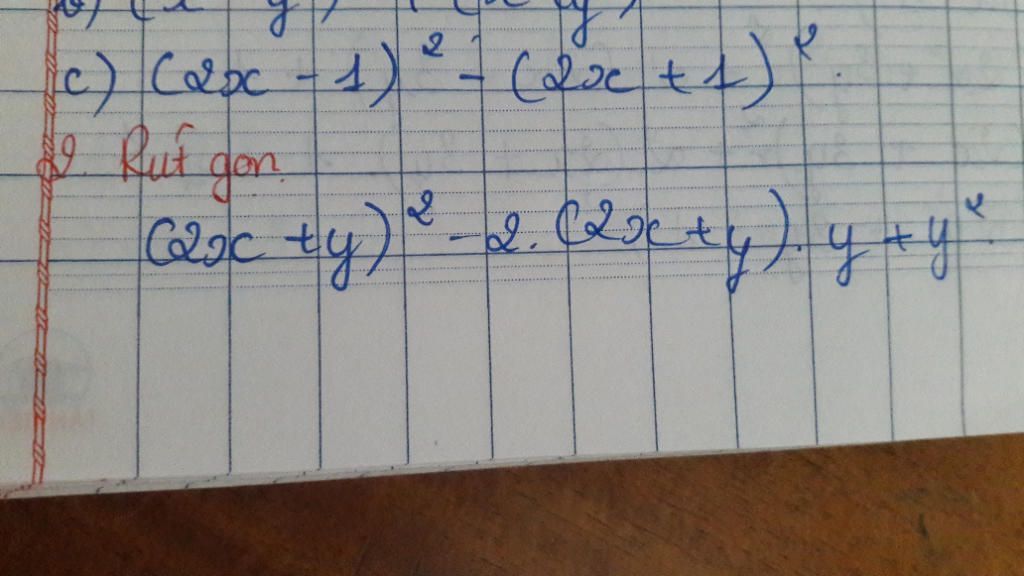 c) (2x - 1)² - (2x + 1)².
2. Rút gọn.
(2x + y)² - 2. (2x + y). y + y².